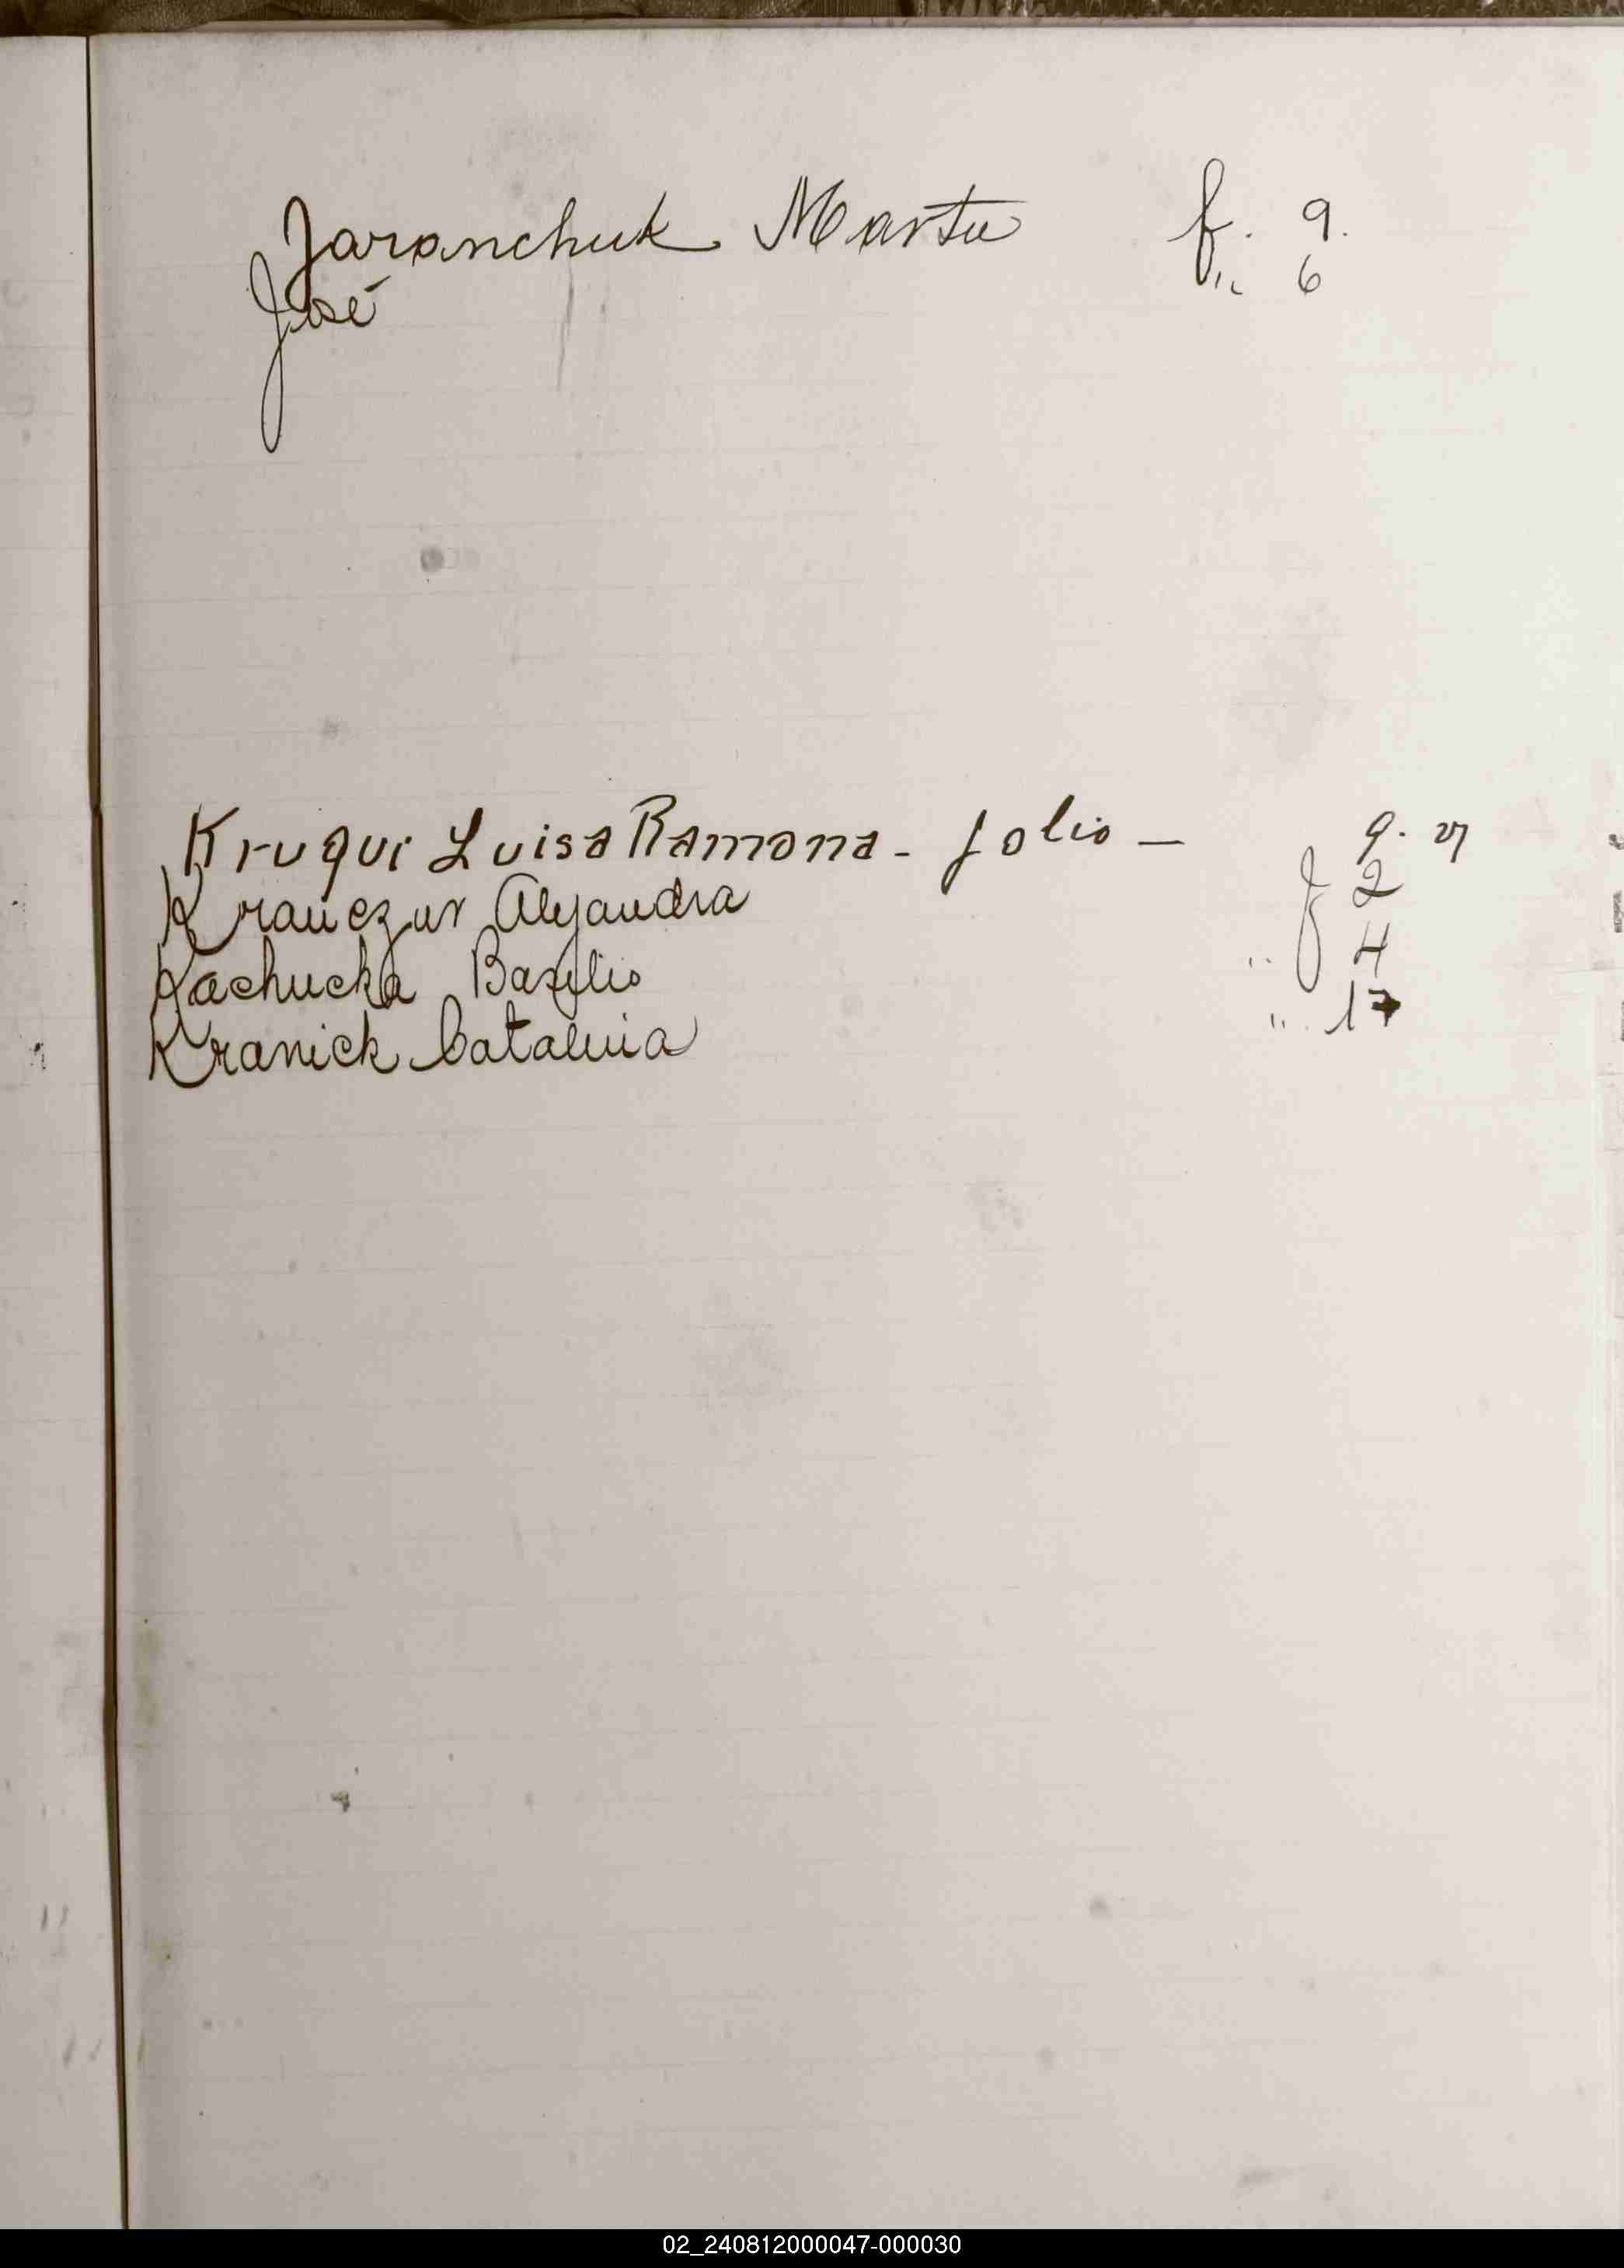 Jaranchuk Marta f. 9.
José " 6
Kruqui Luisa Ramona - folio - 9.
Krauczur Alejandra f 2
Kachucka Basilio " 4
Kranick Catalina " 17
02_240812000047-000030